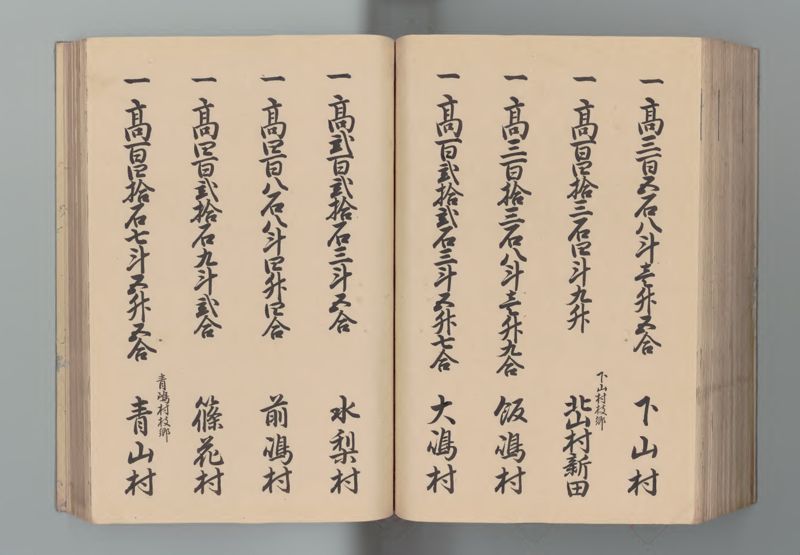 一高三百五石八斗壱升五合 下山村
下山村枝郷
一高百四拾三石四斗九升 北山村新田
一高三百拾三石八斗壱升九合 飯嶋村
一高百弐拾弐石三斗五升七合 大嶋村
一高弐百弐拾石三斗五合 水梨村
一高四百八石八斗四升四合 前嶋村
一高四百弐拾石九斗弐合 篠花村
青嶋村枝郷
一高百四拾石七斗五升五合 青山村